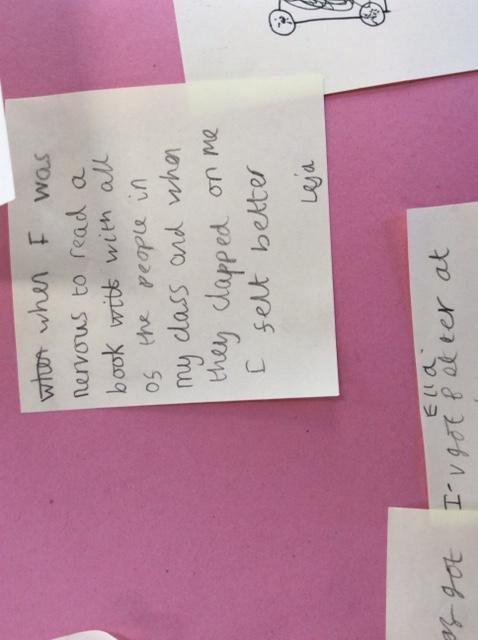 when when I was
nervous to read a
book with with all
os the people in
my class and when
they clapped on me
I felt better
Leja
Ella
I-v got better at
got